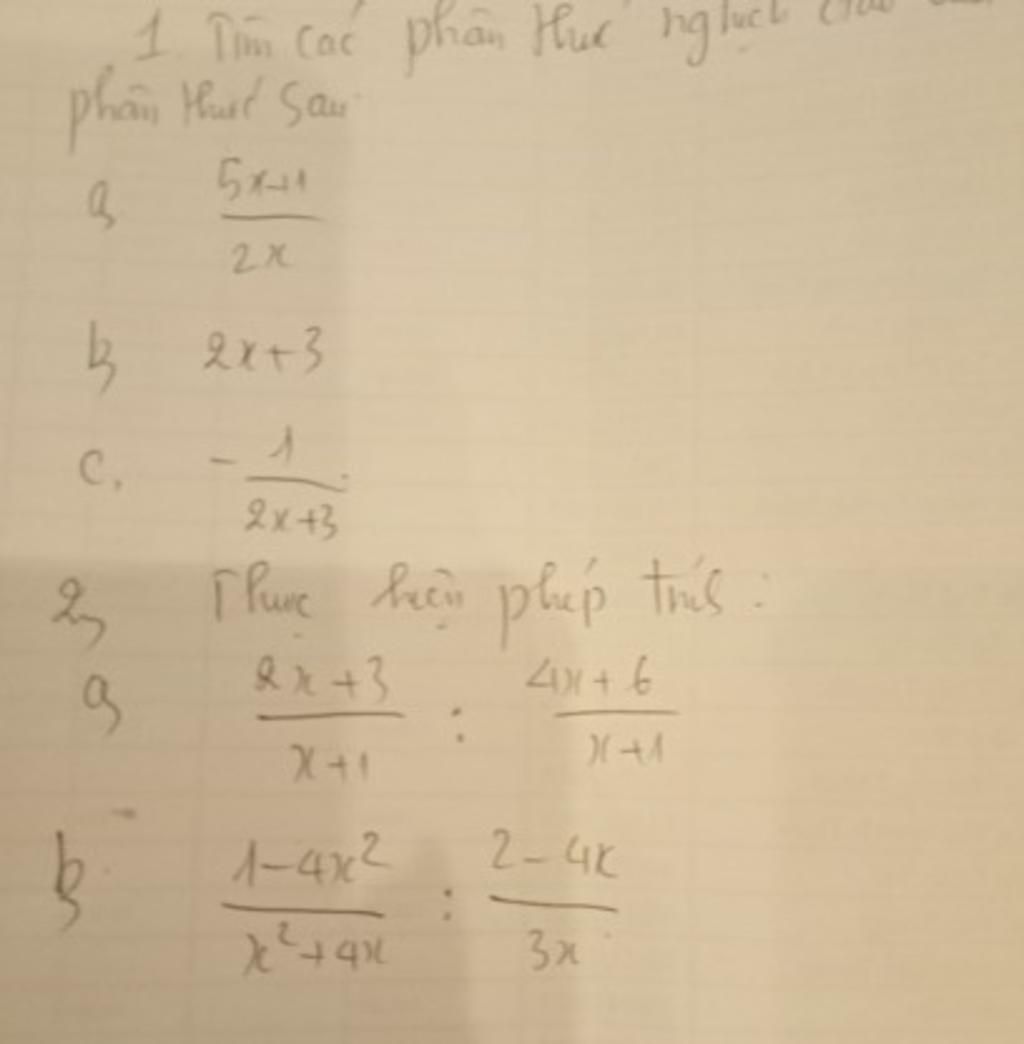 1. Tìm các phân thức nghịch
phân thức sau
a, 5x+1 / 2x
b, 2x+3
c, - 1 / 2x+3
2, Thực hiện phép tính:
a, 2x+3 / x+1 : 4x+6 / x+1
b, 1-4x² / x²+4x : 2-4x / 3x